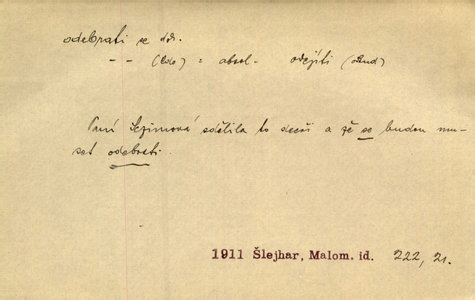 odebrati se dok.
– – (kdo) = absol. odejíti (odkud)
Paní Sezimová sdělila to dceři a že se budou mu-
set odebrati.
1911 Šlejhar, Malom. id. 222, 21.